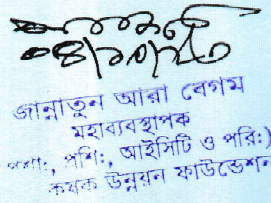 জান্নাতুন আরা বেগম
মহাব্যবস্থাপক
প্রশাঃ, প্রশিঃ, আইসিটি ও পরিঃ)
কৃষক উন্নয়ন ফাউন্ডেশন